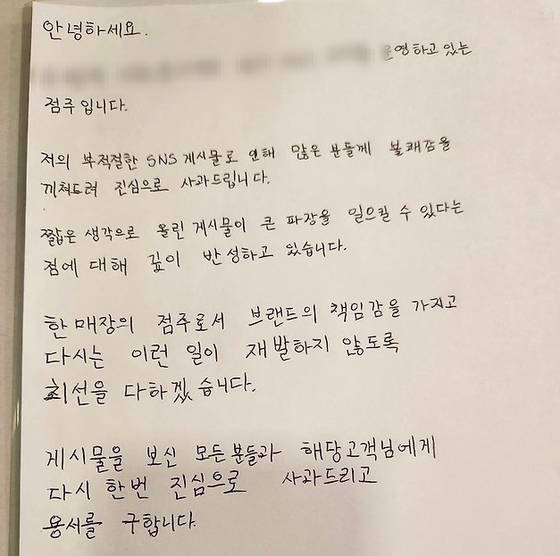 안녕하세요.
영하고 있는
점주입니다.
저의 부적절한 SNS 게시물로 인해 많은 분들께 불쾌감을
끼쳐드려 진심으로 사과드립니다.
짧은 생각으로 올린 게시물이 큰 파장을 일으킬 수 있다는
점에 대해 깊이 반성하고 있습니다.
한 매장의 점주로서 브랜드의 책임감을 가지고
다시는 이런 일이 재발하지 않도록
최선을 다하겠습니다.
게시물을 보신 모든분들과 해당고객님에게
다시 한번 진심으로 사과드리고
용서를 구합니다.